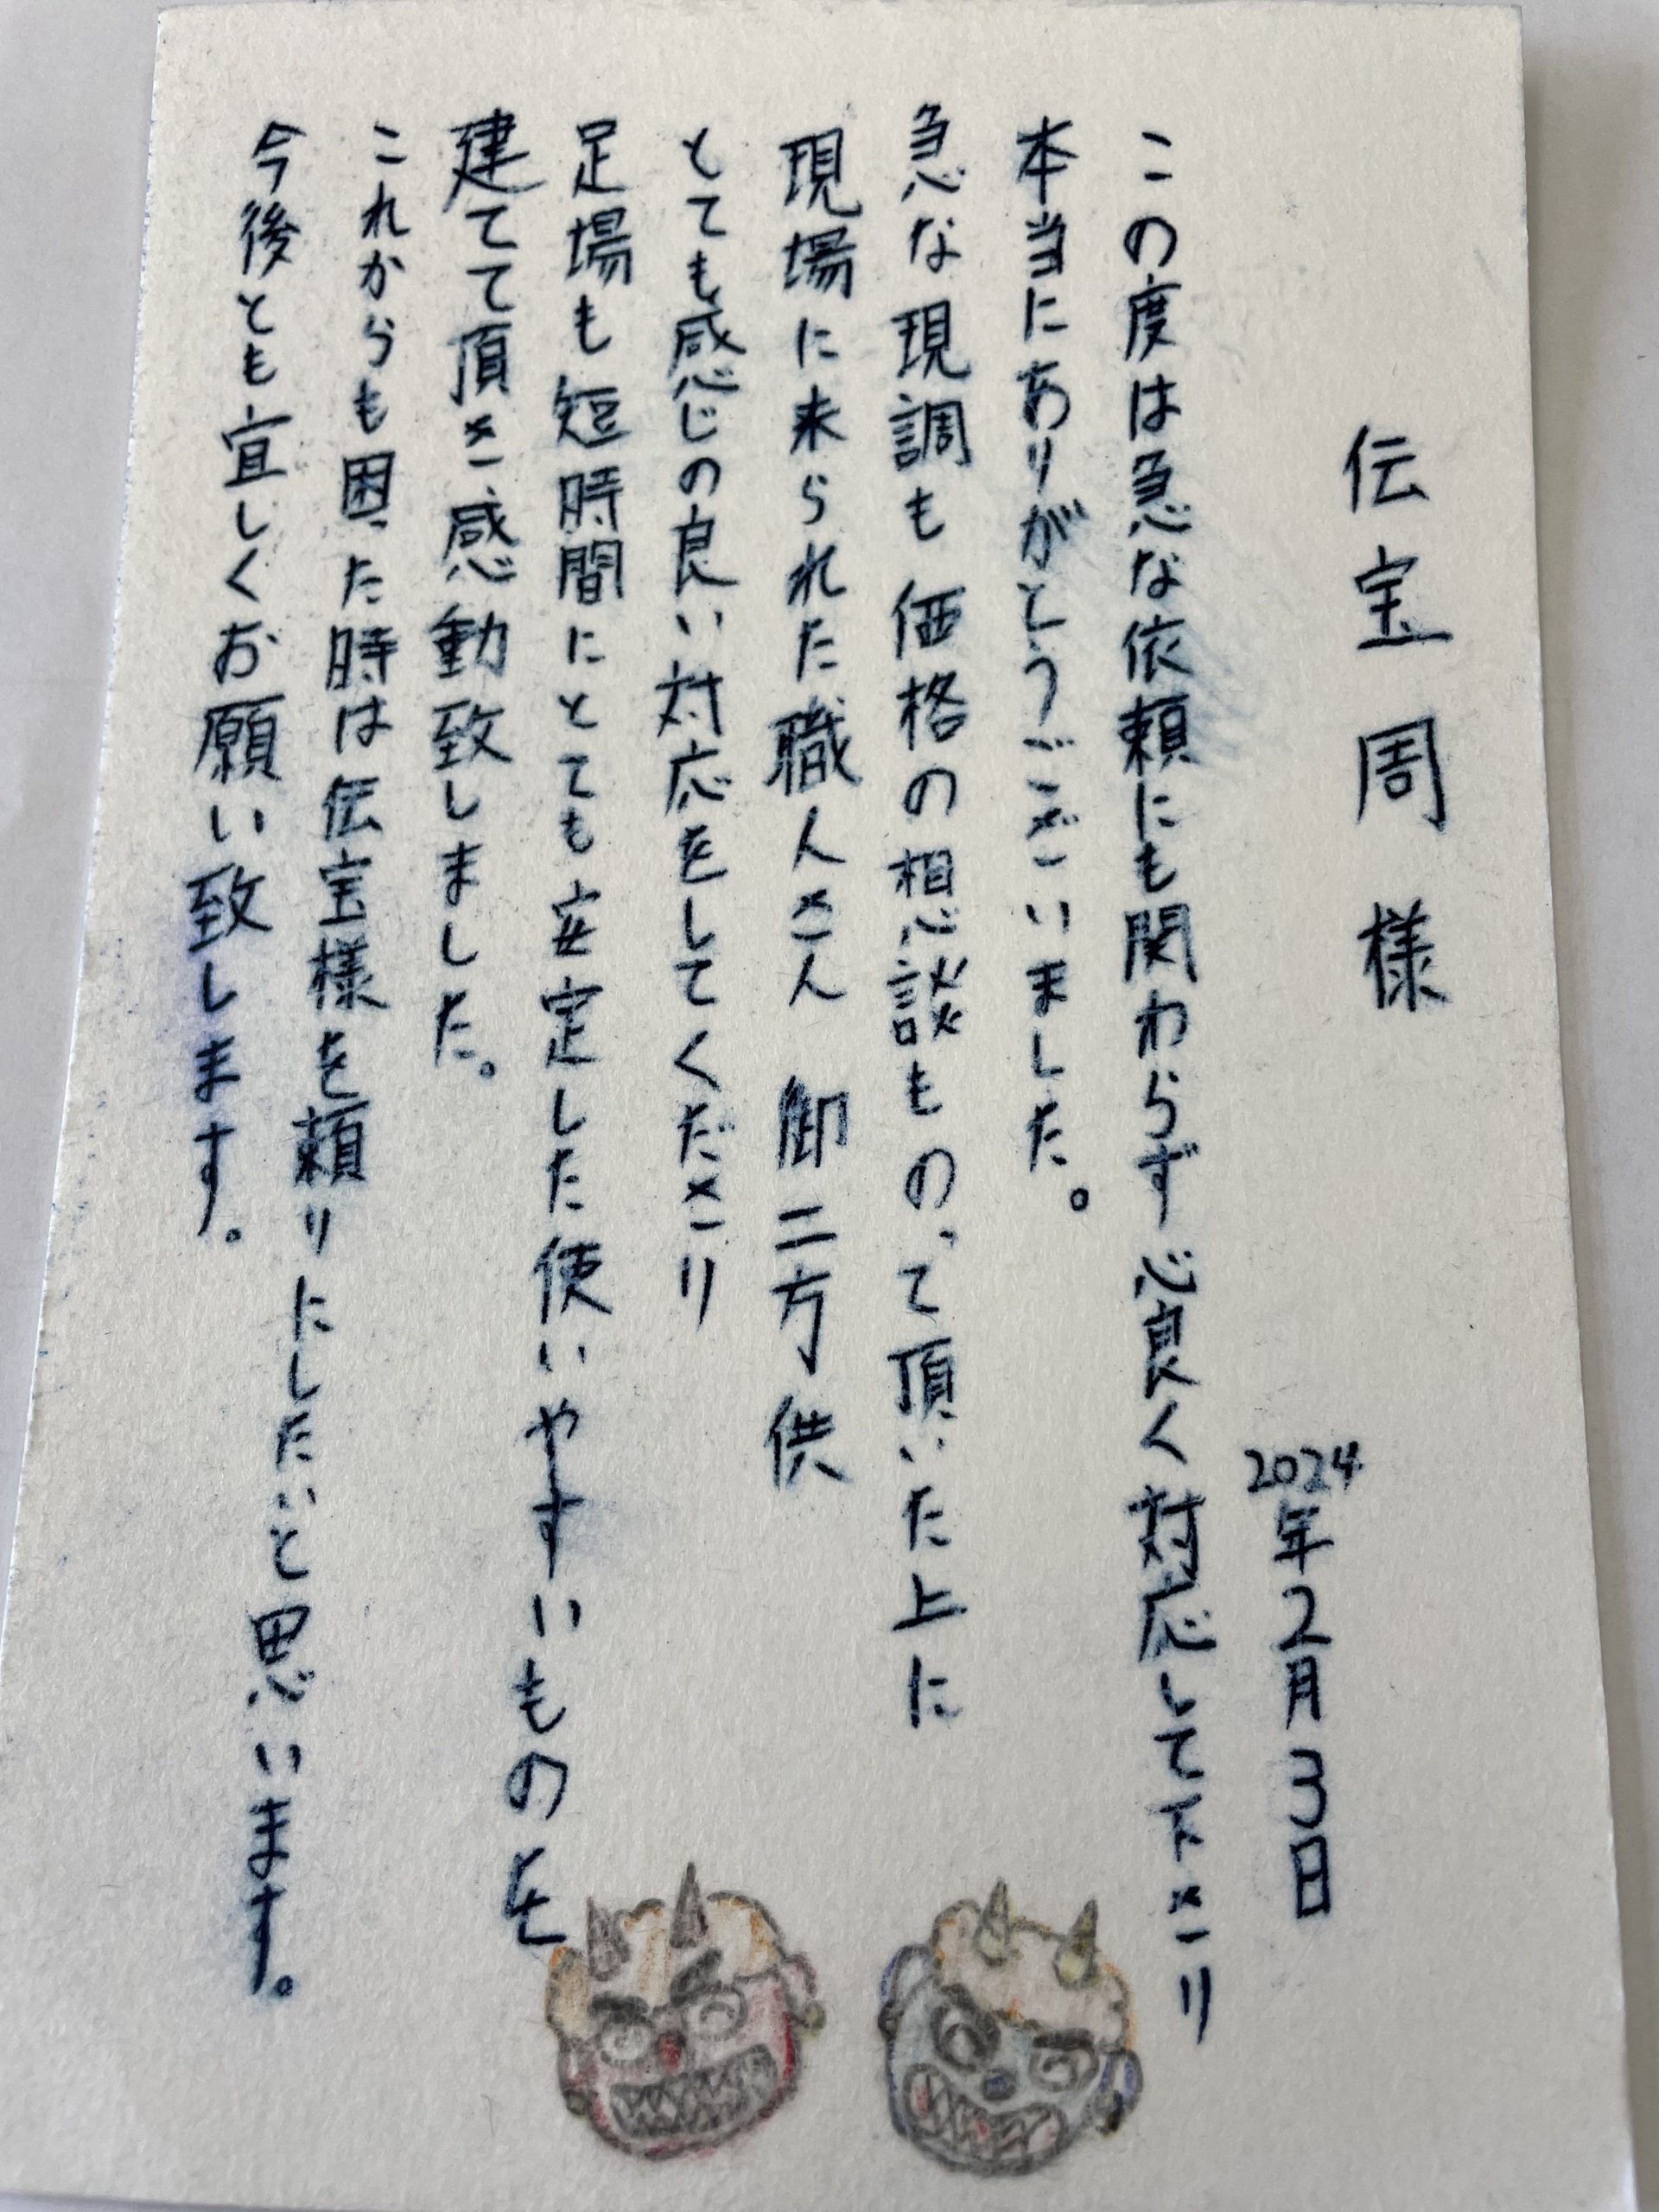 伝宝周様
2024年2月3日
この度は急な依頼にも関わらず心良く対応して下さり
本当にありがとうございました。
急な現調も価格の想談ものって頂いた上に
現場に来られた職人さん御二方供
とても感じの良い対応をしてくださり
足場も短時間にとても安定した使いやすいものを
建てて頂き感動致しました。
これからも困った時は伝宝様を頼りにしたいと思います。
今後とも宜しくお願い致します。